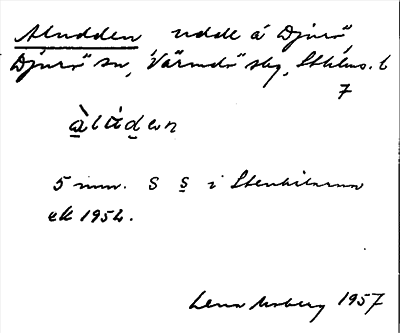 Aludden udde å Djurö,
Djurö sn, Värmdö skg, Sthlms. l
7
àlùden
5 mm. S s i Stenkilarna
ek 1954.
Lena Moberg 1957